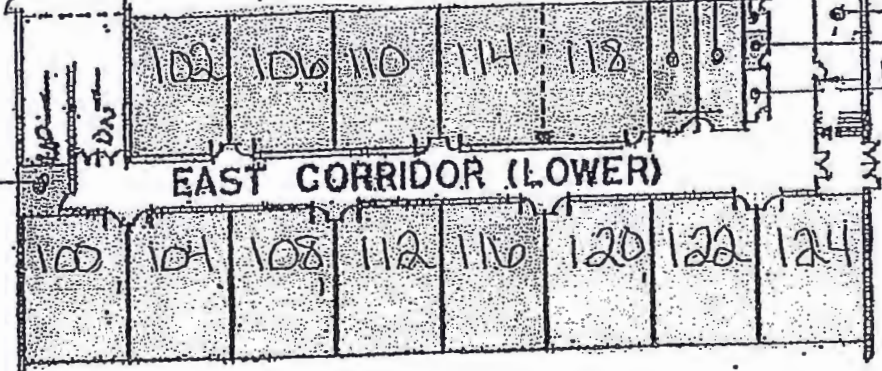 102 106 110 114 118
EAST CORRIDOR (LOWER)
100 104 108 112 116 120 122 124